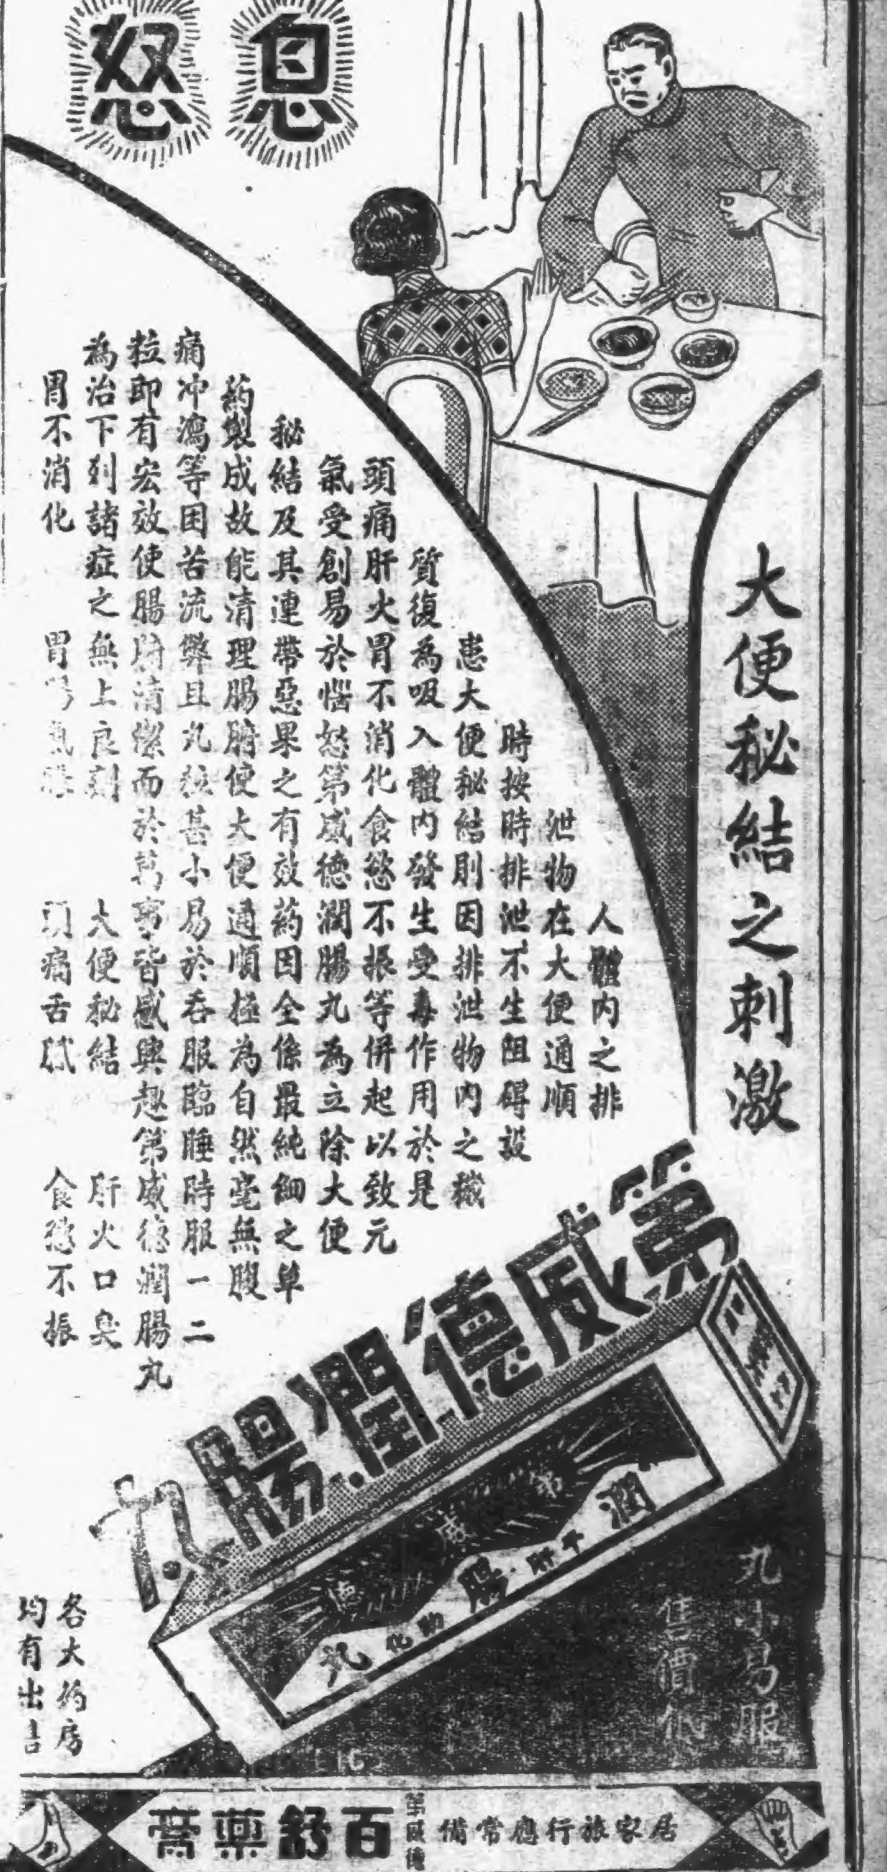 息怒
大便秘結之刺激
人體內之排
泄物在大便通順
時按時排泄不生阻碍設
患大便秘結則因排泄物內之穢
質復為吸入體內發生受毒作用於是
頭痛肝火胃不消化食慾不振等併起以致元
氣受創易於惱怒第威德潤腸丸為立除大便
秘結及其連帶惡果之有效药因全係最純細之草
药製成故能清理腸腑使大便通順極為自然毫無腹
痛冲瀉等困苦流弊且丸粒甚小易於吞服臨睡時服一二
粒即有宏效使腸腑清潔而於萬事皆感興趣第威德潤腸丸
為治下列諸症之無上良劑 大便秘結 肝火口臭
胃不消化 胃 頭痛舌膩 食慾不振
第威德潤腸丸
第威德
潤腸丸
平肝
助化
丸小易服
售價低
各大药房
均有出售
居家旅行應常備
第威德
百舒藥膏